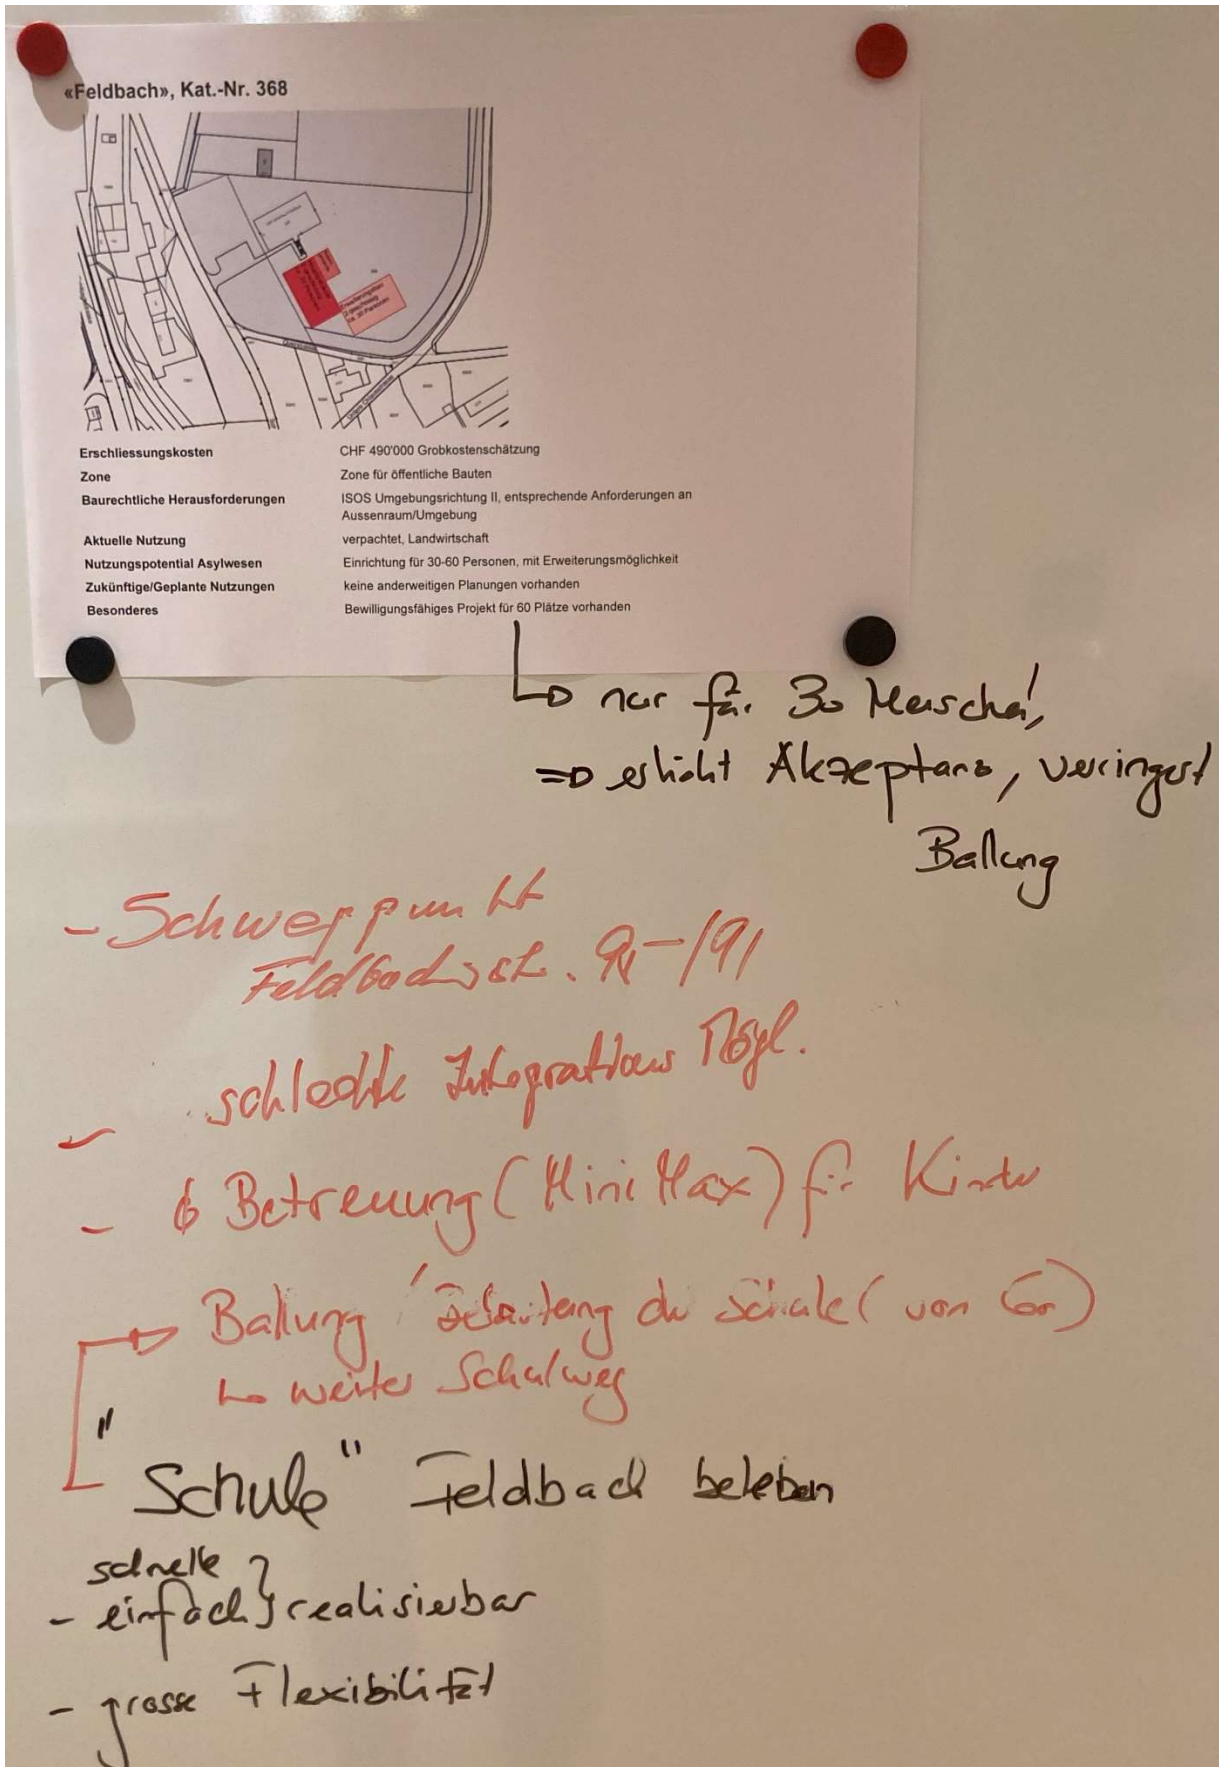 «Feldbach», Kat.-Nr. 368
Erweiterungsbau
2 geschossig
ca. 30 Personen
Erschliessungskosten CHF 490'000 Grobkostenschätzung
Zone Zone für öffentliche Bauten
Baurechtliche Herausforderungen ISOS Umgebungsrichtung II, entsprechende Anforderungen an
Aussenraum/Umgebung
Aktuelle Nutzung verpachtet, Landwirtschaft
Nutzungspotential Asylwesen Einrichtung für 30-60 Personen, mit Erweiterungsmöglichkeit
Zukünftige/Geplante Nutzungen keine anderweitigen Planungen vorhanden
Besonderes Bewilligungsfähiges Projekt für 60 Plätze vorhanden
↳ nur für 30 Menschen!
⇒ erhöht Akzeptanz, verringert
Ballung
- Schwerpunkt
Feldbachstr.
- schlechte Integrations Mögl.
- Betreuung (MiniMax) für Kinder
→ Ballung / der Schule (von
↳ weiter Schulweg
"Schule" Feldbach beleben
schnelle
- einfach } realisierbar
- grosse Flexibilität